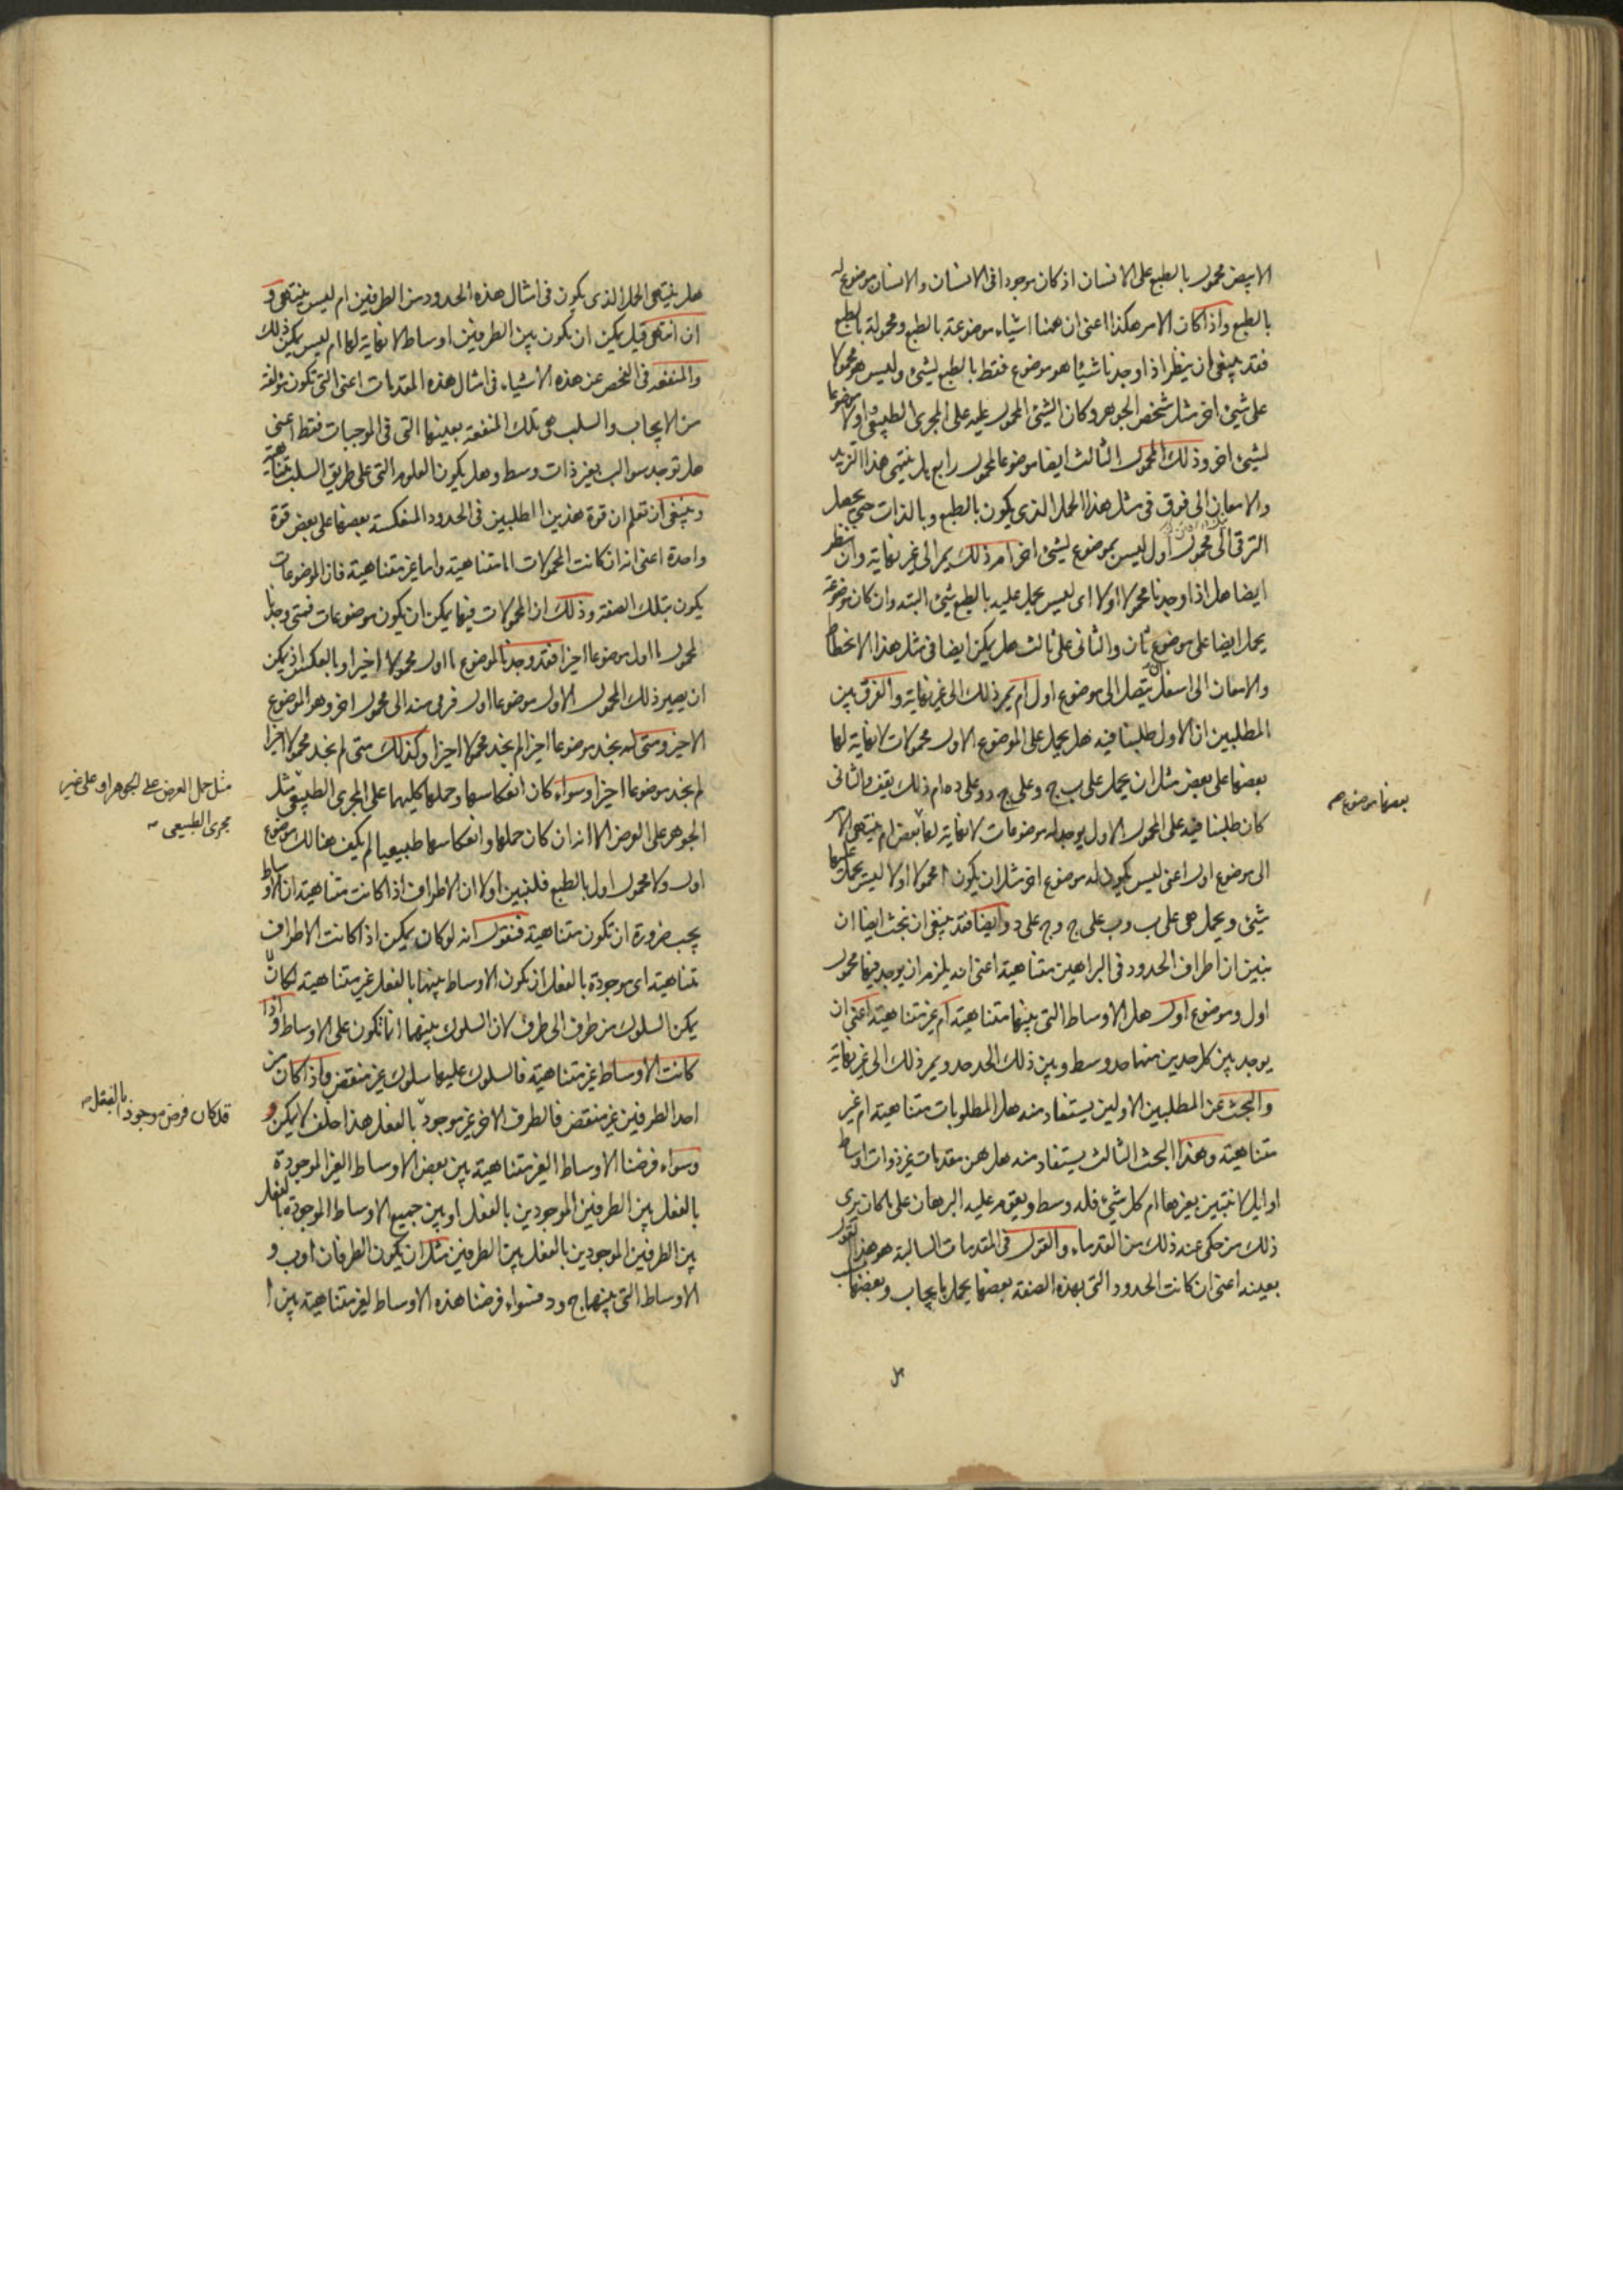 الابيض محمول بالطبع على الانسان اذ كان موجودا فى الانسان والانسان موضوع له
بالطبع واذا كان الامر هكذا اعنى ان ههنا اشياء موضوعة بالطبع ومحمولة بالطبع
فقد ينبغى ان ينظر اذا وجدنا شيئا هو موضوع فقط بالطبع لشئ وليس هو محمولا
على شئ اخر مثل شخص الجوهر وكان الشئ المحمول عليه على المجرى الطبيعى اولا موضوعا
لشئ اخر وذلك المحمول الثالث ايضا موضوعا لمحمول رابع هل ينتهى هذا التزيد
والامعان الى فوق فى مثل هذا الحمل الذى يكون بالطبع وبالذات حتى يحصل
الترقى الى محمول اول ليس بموضوع لشئ اخر ام ذلك يمر الى غير نهاية وان ننظر
ايضا هل اذا وجدنا محمولا اولا اى ليس يحمل عليه بالطبع شئ البتة وان كان موضوعه
يحمل ايضا على موضوع ثان والثانى على ثالث هل يمكن ايضا فى مثل هذا الانحطاط
والامعان الى اسفل ان يتصل الى موضوع اول ام يمر ذلك الى غير نهاية والفرق بين
المطلبين ان الاول طلبنا فيه هل يحمل على الموضوع الاول محمولات لا نهاية لها
بعضها على بعض مثل ان يحمل على ب ج وعلى ج د وعلى د ه ام ذلك يقف والثانى
كان طلبنا فيه على المحمول الاول يوجد له موضوعات لا نهاية لها بعض ام ينتهى الامر
الى موضوع اول اعنى ليس يكون له موضوع اخر مثل ان يكون ا محمولا اولا ليس يحمل عليها
شئ ويحمل هى على ب وب على ج وج على د وايضا فقد ينبغى ان نبحث ايضا ان
نبين ان اطراف الحدود فى البراهين متناهية اعنى انه يلزم ان يوجد فيها محمول
اول وموضوع اول هل الاوساط التى بينها متناهية ام غير متناهية اعنى ان
يوجد بين كل حدين منها حد وسط وبين ذلك الحد حد ويمر ذلك الى غير نهاية
والبحث عن المطلبين الاولين يستفاد منه هل المطلوبات متناهية ام غير
متناهية وهذا البحث الثالث يستفاد منه هل هن مقدمات غير ذوات اوساط
اوايل لا تتبين بغيرها ام كل شئ فله وسط ويقوم عليه البرهان على ما كان يرى
ذلك من حكى عنه ذلك من القدماء والقول فى المقدمات السالبة هو هذا القول
بعينه اعنى ان كانت الحدود التى بهذه الصفة بعضها يحمل بايجاب وبعضها بسلب
هل
بعضها موضوع
هل ينتهى الحمل الذى يكون فى امثال هذه الحدود من الطرفين ام ليس ينتهى و
ان انتهى قبل يمكن ان يكون بين الطرفين اوساط لا نهاية لها ام ليس يمكن ذلك
والمنفعة فى الفحص عن هذه الاشياء فى امثال هذه المقدمات اعنى التى تكون مؤلفة
من الايجاب والسلب هى تلك المنفعة بعينها التى فى الموجبات فقط اعنى
هل توجد سوالب بغير ذات وسط وهل يكون العلوم التى على طريق السلب متناهية
وينبغى ان تعلم ان قوة هذين المطلبين فى الحدود المنعكسة بعضها على بعض قوة
واحدة اعنى انه ان كانت المحمولات اما متناهية واما غير متناهية فان الموضوعات
يكون بتلك الصفة وذلك ان المحمولات فيها يمكن ان يكون موضوعات فمتى وجدنا
لمحمول ما اول موضوعا اخيرا فقد وجدنا لموضوع ما اول محمولا اخيرا وبالعكس اذ يمكن
ان يصير ذلك المحمول الاول موضوعا اول فرقى منه الى محمول اخر وهو الموضوع
الاخير ومتى لم نجد موضوعا اخيرا لم نجد محمولا اخيرا وكذلك متى لم نجد محمولا اخيرا
لم نجد موضوعا اخيرا وسواء كان انعكاسها وحملها كليهما على المجرى الطبيعى مثل
الجوهر على العرض الا انه ان كان حملها وانعكاسها طبيعيا لم يكن هنالك موضوع
اول ولا محمول اول بالطبع فلنبين اولا ان الاطراف اذا كانت متناهية ان الاوساط
يجب ضرورة ان تكون متناهية فنقول انه لو كان يمكن اذا كانت الاطراف
متناهية اى موجودة بالفعل ان يكون الاوساط بينها بالفعل غير متناهية لكان
يمكن السلوك من طرف الى طرف لان السلوك بينهما انما تكون على الاوساط واذا
كانت الاوساط غير متناهية فالسلوك عليها سلوك غير منقض واذا كان من
احد الطرفين غير منقض فالطرف الاخر غير موجود بالفعل هذا خلف لا يمكن
وسواء فرضنا الاوساط الغير متناهية بين بعض الاوساط الغير الموجودة
بالفعل بين الطرفين الموجودين بالفعل او بين جميع الاوساط الموجودة بالفعل
بين الطرفين الموجودين بالفعل بين الطرفين مثل ان يكون الطرفان ا وب و
الاوساط التى بينهما ج ود فسواء فرضنا هذه الاوساط الغير متناهية بين ا
مثل حمل العرض على الجوهر او على غير
مجرى الطبيعى
قد كان فرض موجود بالفعل